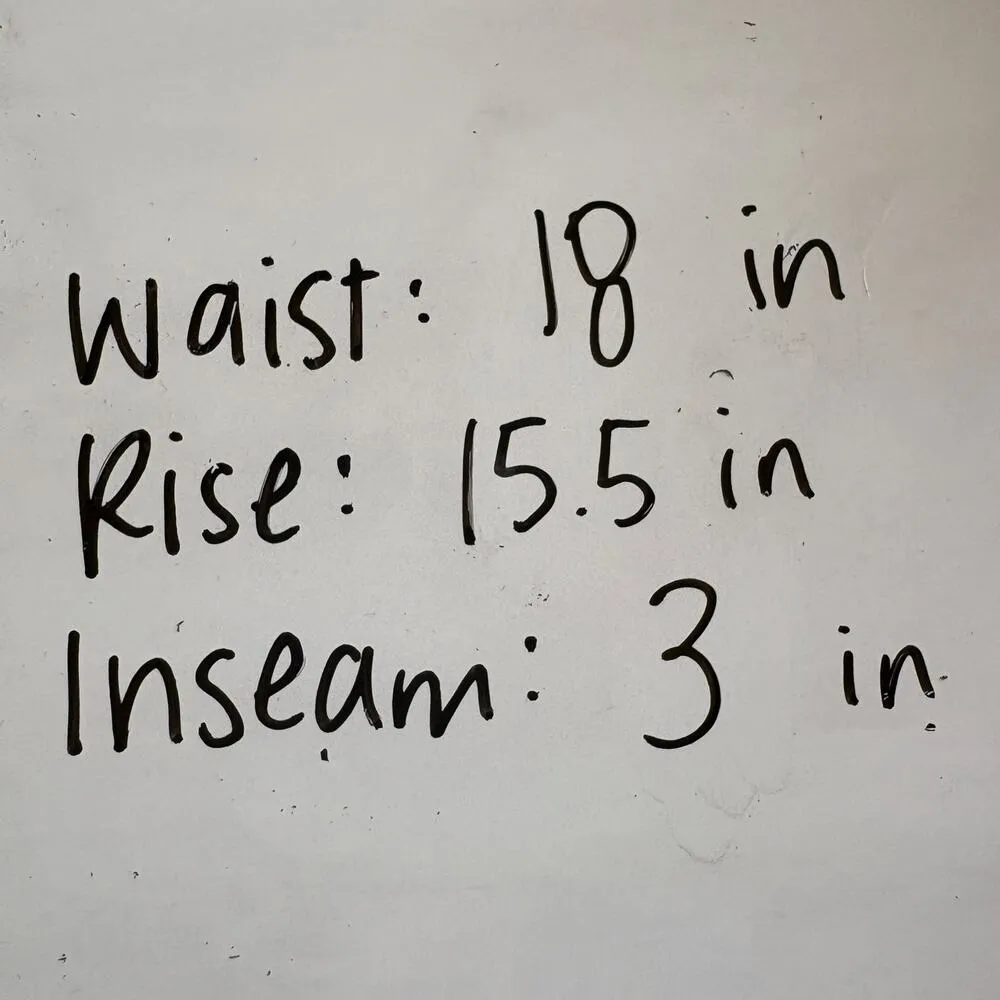 Waist: 18 in
Rise: 15.5 in
Inseam: 3 in